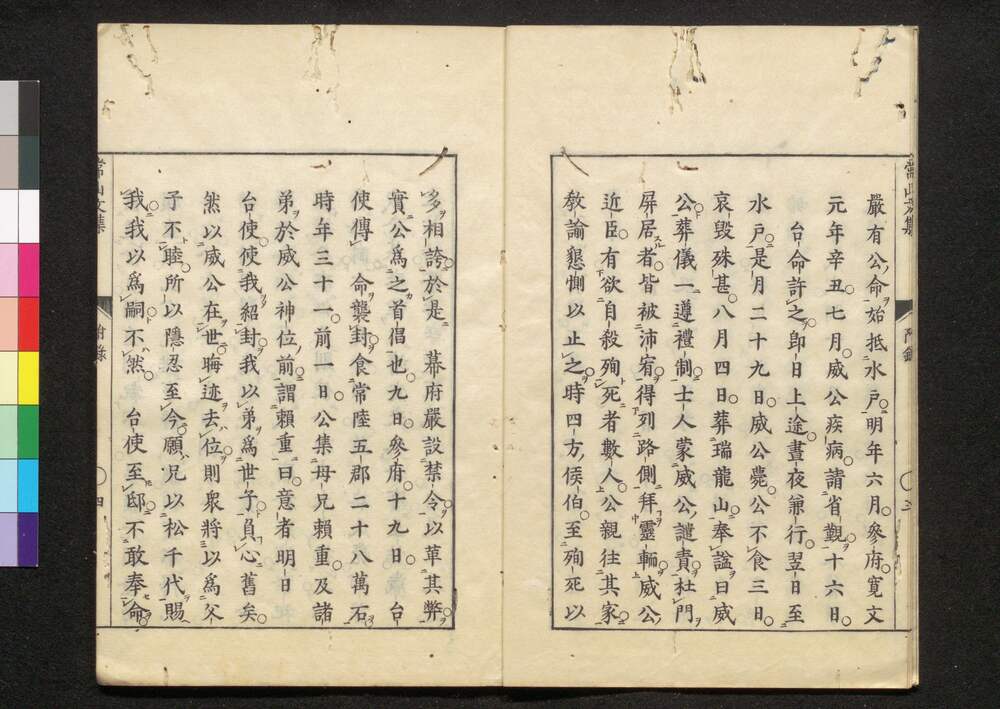 常山文集
附錄
嚴有公命始抵水戶明年六月參府寬文
元年辛丑七月威公疾病請省覲十六日
台命許之卽日上途晝夜兼行翌日至
水戶是月二十九日威公薨公不食三日
哀毀殊甚八月四日葬瑞龍山奉諡曰威
公葬儀一遵禮制士人蒙威公譴責杜門
屏居者皆被沛宥得列路側拜靈輀威公
近臣有欲自殺殉死者數人公親往其家
敎諭懇惻以止之時四方侯伯至殉死以
多相誇於是 幕府嚴設禁令以革其弊
實公爲之首倡也九日參府十九日 台
使傳 命襲封食常陸五郡二十八萬石
時年三十一前一日公集母兄賴重及諸
弟於威公神位前謂賴重曰意者明日
台使使我紹封我以弟爲世子負心舊矣
然以威公在世晦迹去位則衆將以爲父
子不睦所以隱忍至今願兄以松千代賜
我我以爲嗣不然 台使至邸不敢奉命
常山文集
附錄
四